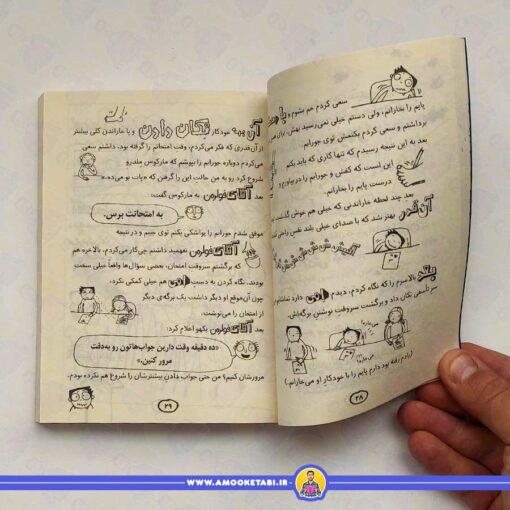 سعی کردم خم بشوم و با
پایم را بخارانم، ولی دستم خیلی نمی‌رسید بهش. برای
برداشتم و سعی کردم بکنمش توی جورابم.
بعد به این نتیجه رسیدم که تنها کاری که باید بکنم
این است که کفش و جورابم را دربیاورم و
درست پایم را بخارانم.
بعد چند لحظه خاراندنی که خیلی هم خوش گذشت،
آن‌قدر بهتر شد که با صدای خیلی بلند نفس راحتی
آخیش ش ش ش ش ش
بعد بالاسرم را که نگاه کردم، دیدم اِمی دارد تماشایم
سر تأسفی تکان داد و برگشت سروقت نوشتن برگه‌اش.
(یادم رفته بود دارم پایم را با خودکارِ او می‌خارانم.)
۲۸
آن همه خودکار تکان دادن و پا خاراندن کلی بیشتر
از آن‌قدری که فکر می‌کردم، وقت امتحانم را گرفته بود. داشتم سعی
می‌کردم دوباره جورابم را بپوشم که مارکوس ملدرو
شروع کرد رو به من حالت این را گرفتن که «پات بو می‌ده.»
بعد آقای فولرمن به مارکوس گفت:
به امتحانت برس.
موفق شدم جورابم را یواشکی بکنم توی جیبم و در نتیجه
آقای فولرمن نفهمید داشتم چی‌کار می‌کردم. بالاخره هم
که برگشتم سروقت امتحان، بعضی سؤال‌ها واقعاً خیلی سخت
بودند. نگاه کردن به دستِ اِمی هم خیلی کمکی نکرد،
چون آن‌موقع او دیگر داشت یک برگه‌ی دیگر
از امتحان را می‌نوشت.
بعد آقای فولرمن یکهو اعلام کرد:
«ده دقیقه وقت دارین جواب‌هاتون رو به‌دقت
مرور کنین.»
مرورشان کنیم؟ من حتی جواب دادن بیشترشان را شروع هم نکرده بودم.
۲۹
WWW.AMOOKETABI.IR